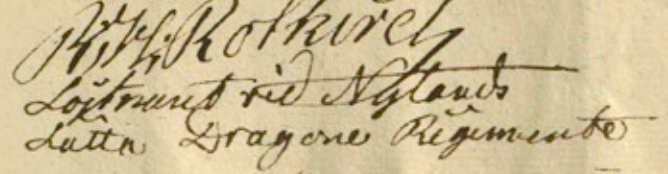 R. H. Rotkirck
Löjtnant vid Nylands
Lätta Dragone Regimente